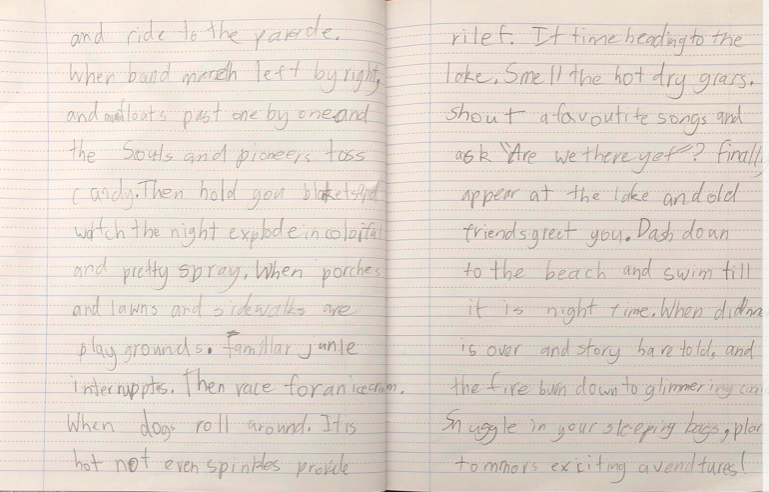 and ride to the parede.
When band mareh left by right,
and floats past one by one and
the Souls and pioneers toss
candy. Then hold you
watch the night explode in
and pretty spray. When porches
and lawns and sidewalks are
play grounds. familiar junle
interrupptes. Then race for an
When dogs roll around. It is
hot not even spinkles provide
rilef. It time heading to the
lake. Smell the hot dry grars.
Shout a favoutite songs and
ask "Are we there yet"? finally
appear at the lake and old
friends greet you. Dash down
to the beach and swim till
it is night time. When
is over and story bare told, and
the fire burn down to glimmering
Snuggle in your sleeping bags, plan
tommors exciting avendtures!